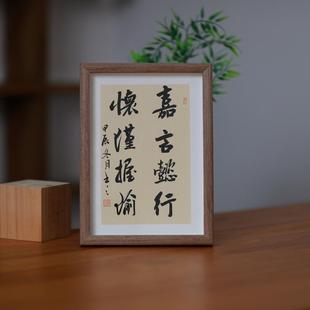 嘉言懿行
懷瑾握瑜
甲辰冬月